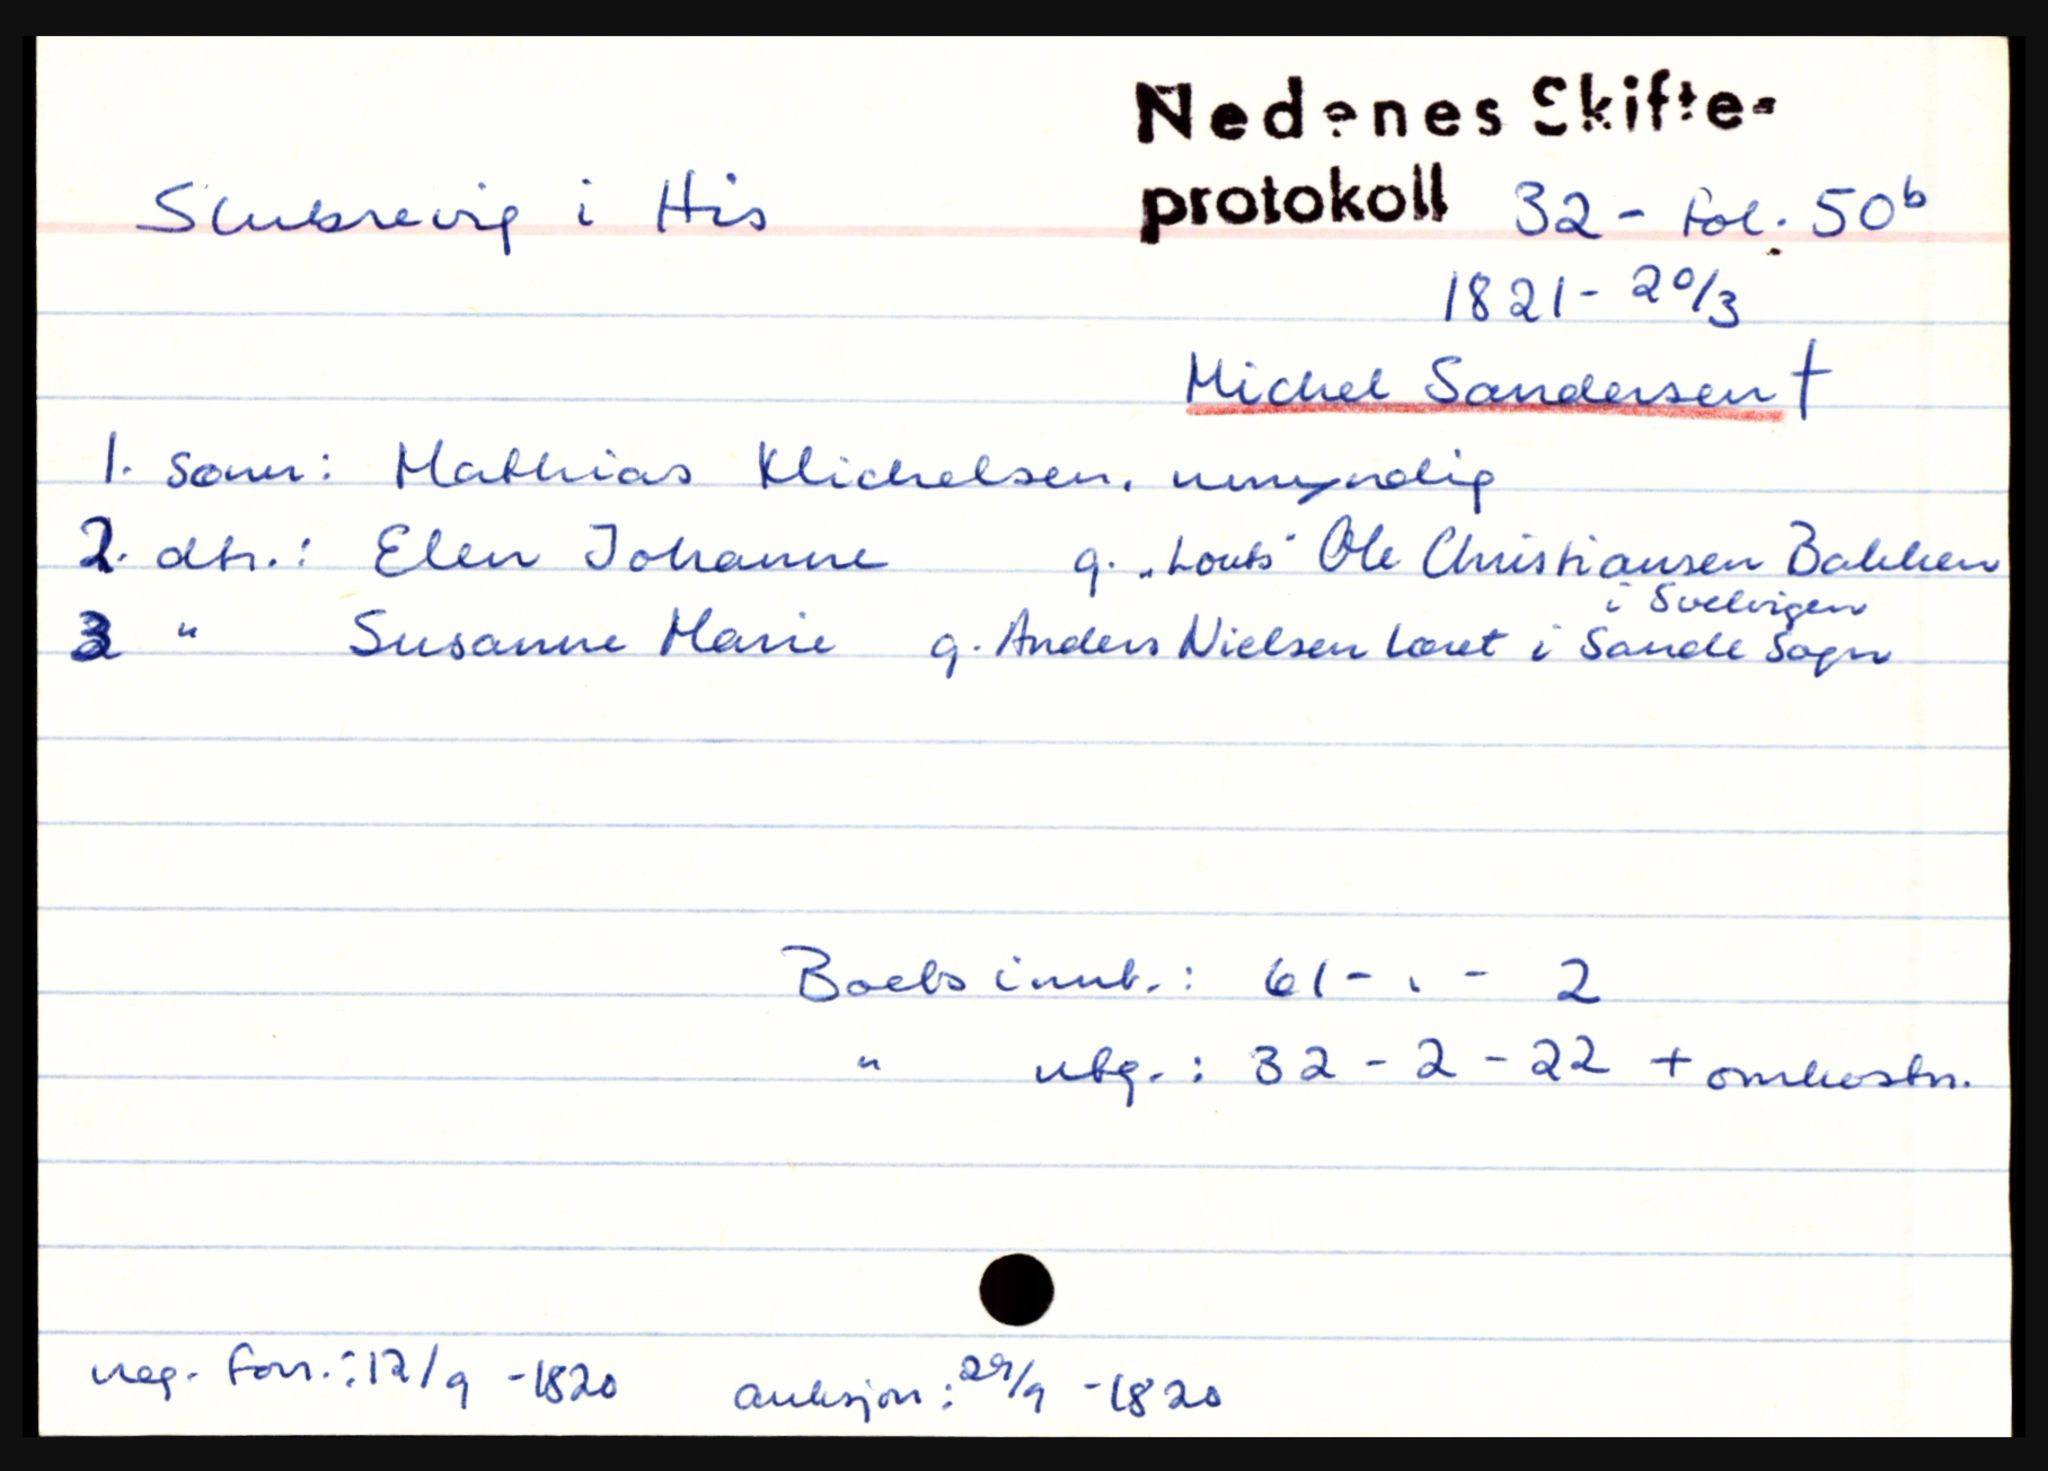 Nedenes Skifte-
Slubrevig i His protokoll 32 - Fol. 50b
1821 - 20/3
Michel Sandersen †
1. sønn: Mathias Michelsen. umyndig
2. dtr.: Elen Johanne g. "Louts" Ole Christiansen Bakken
i Svelvigen
3 " Susanne Marie g. Anders Nielsen Løret i Sande Sogn
Boets innt.: 61 - . - 2
" utg.: 32 - 2 - 22 + omkostn.
reg. forr.: 12/9 - 1820 auksjon: 29/9 - 1820